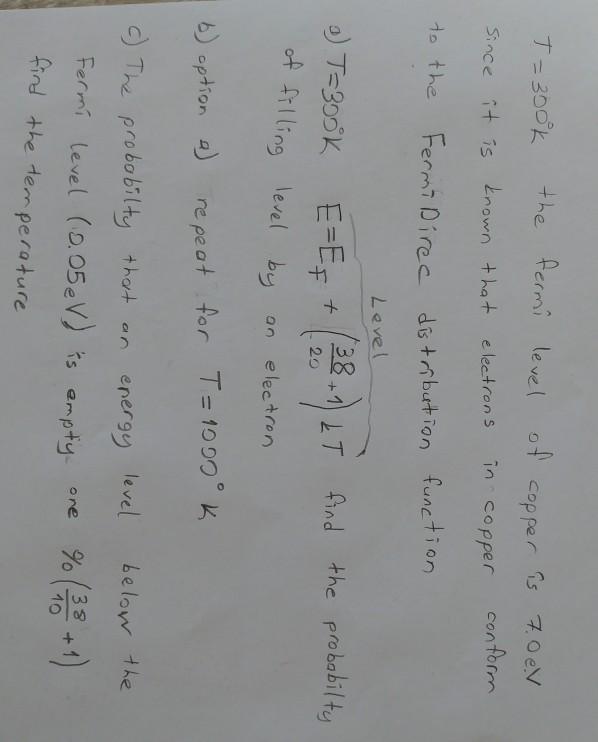 T=300°K the fermi level of copper is 7.0eV
since it is known that electrons in copper conform
to the FermiDirec distribution function
Level
a) T=300°K E=E_F + (38/20 + 1) kT find the probabilty
of filling level by an electron
b) option a) repeat for T=1000°K
c) The probabilty that an energy level below the
Fermi level (0.05eV) is empty one %(38/10 + 1)
find the temperature